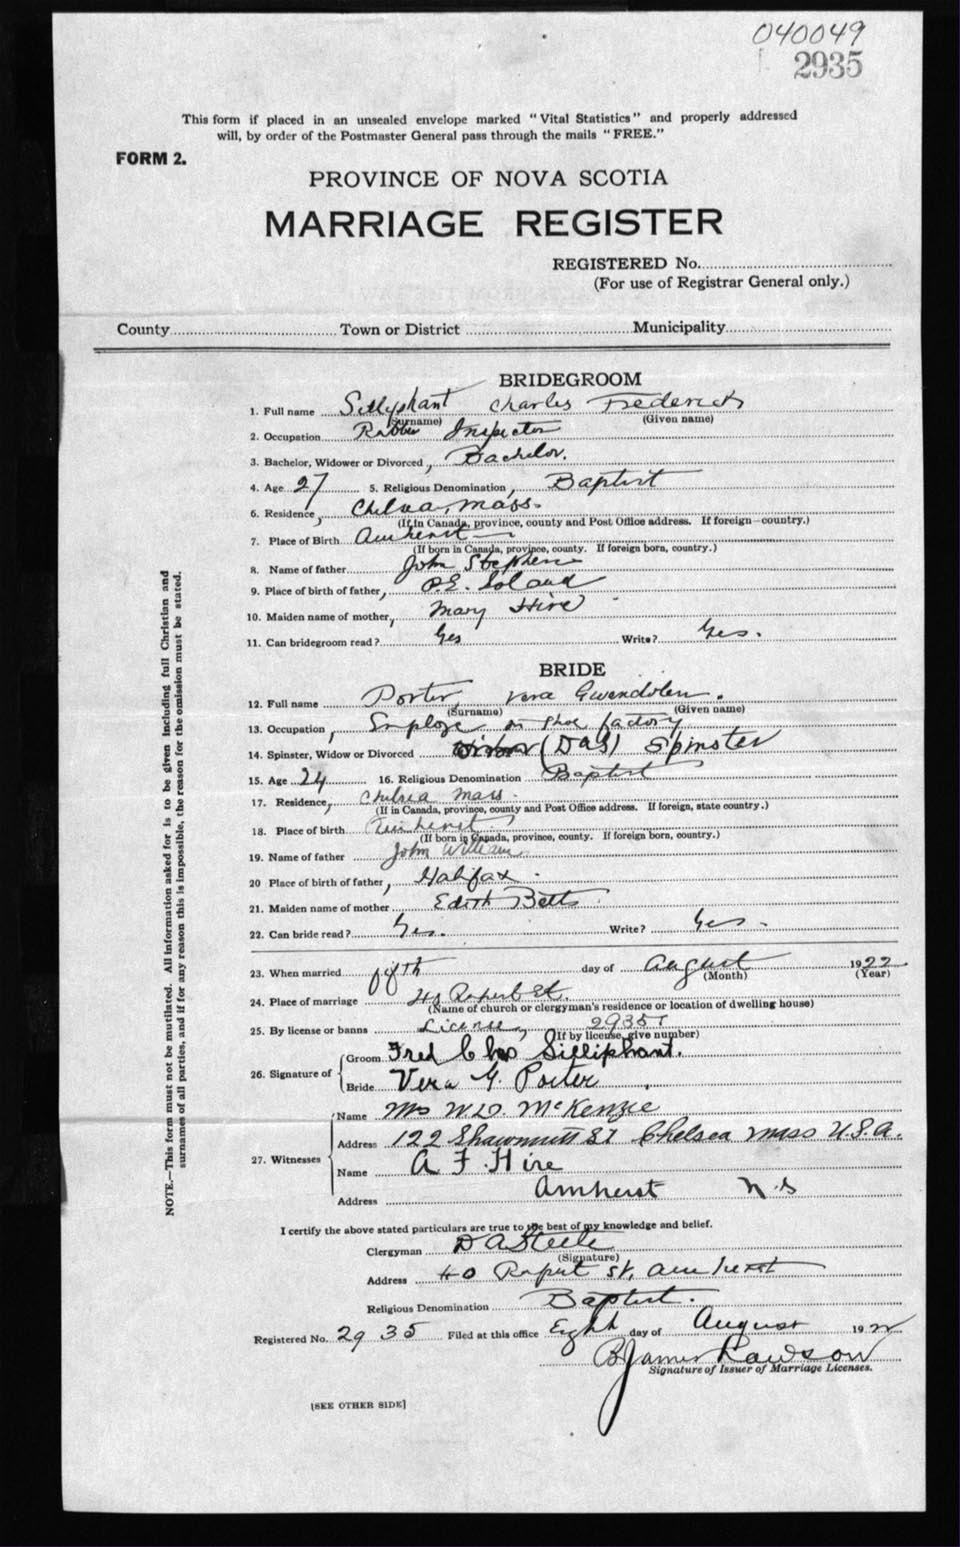 040049
2935
This form if placed in an unsealed envelope marked "Vital Statistics" and properly addressed
will, by order of the Postmaster General pass through the mails "FREE."
FORM 2.
PROVINCE OF NOVA SCOTIA
MARRIAGE REGISTER
REGISTERED No.
(For use of Registrar General only.)
County Town or District Municipality
BRIDEGROOM
1. Full name Silliphant Charles Frederick
(Surname) (Given name)
2. Occupation Rubber Inspector
3. Bachelor, Widower or Divorced, Bachelor.
4. Age 27 5. Religious Denomination, Baptist
6. Residence, Chelsea, Mass.
(If in Canada, province, county and Post Office address. If foreign—country.)
7. Place of Birth Amherst
(If born in Canada, province, county. If foreign born, country.)
8. Name of father John Stephen
9. Place of birth of father, P.E. Island
10. Maiden name of mother, Mary Hire
11. Can bridegroom read? Yes Write? Yes.
BRIDE
12. Full name Porter, Vera Gwendolen.
(Surname) (Given name)
13. Occupation, Employe in Shoe factory
14. Spinster, Widow or Divorced (DAS) Spinster
15. Age 24 16. Religious Denomination Baptist
17. Residence, Chelsea Mass.
(If in Canada, province, county and Post Office address. If foreign, state country.)
18. Place of birth Amherst
(If born in Canada, province, county. If foreign born, country.)
19. Name of father John William
20 Place of birth of father, Halifax.
21. Maiden name of mother Edith Betts
22. Can bride read? Yes. Write? Yes.
23. When married day of August 1922
(Month) (Year)
24. Place of marriage 40 Rupert St.
(Name of church or clergyman's residence or location of dwelling house)
25. By license or banns License,
(If by license, give number)
26. Signature of
Groom Fred Chas Silliphant.
Bride Vera G. Porter
27. Witnesses
Name Mrs W.D. McKenzie
Address 122 Shawmutt St Chelsea Mass U.S.A.
Name A F. Hire
Address Amherst N.S
I certify the above stated particulars are true to the best of my knowledge and belief.
Clergyman D A Steele
(Signature)
Address 40 Rupert St, Amherst
Religious Denomination Baptist.
Registered No. 2935 Filed at this office Eight day of August 1922
B James Lawson
Signature of Issuer of Marriage Licenses.
[SEE OTHER SIDE]
NOTE.—This form must not be mutilated. All information asked for is to be given including full Christian and
surnames of all parties, and if for any reason this is impossible, the reason for the omission must be stated.